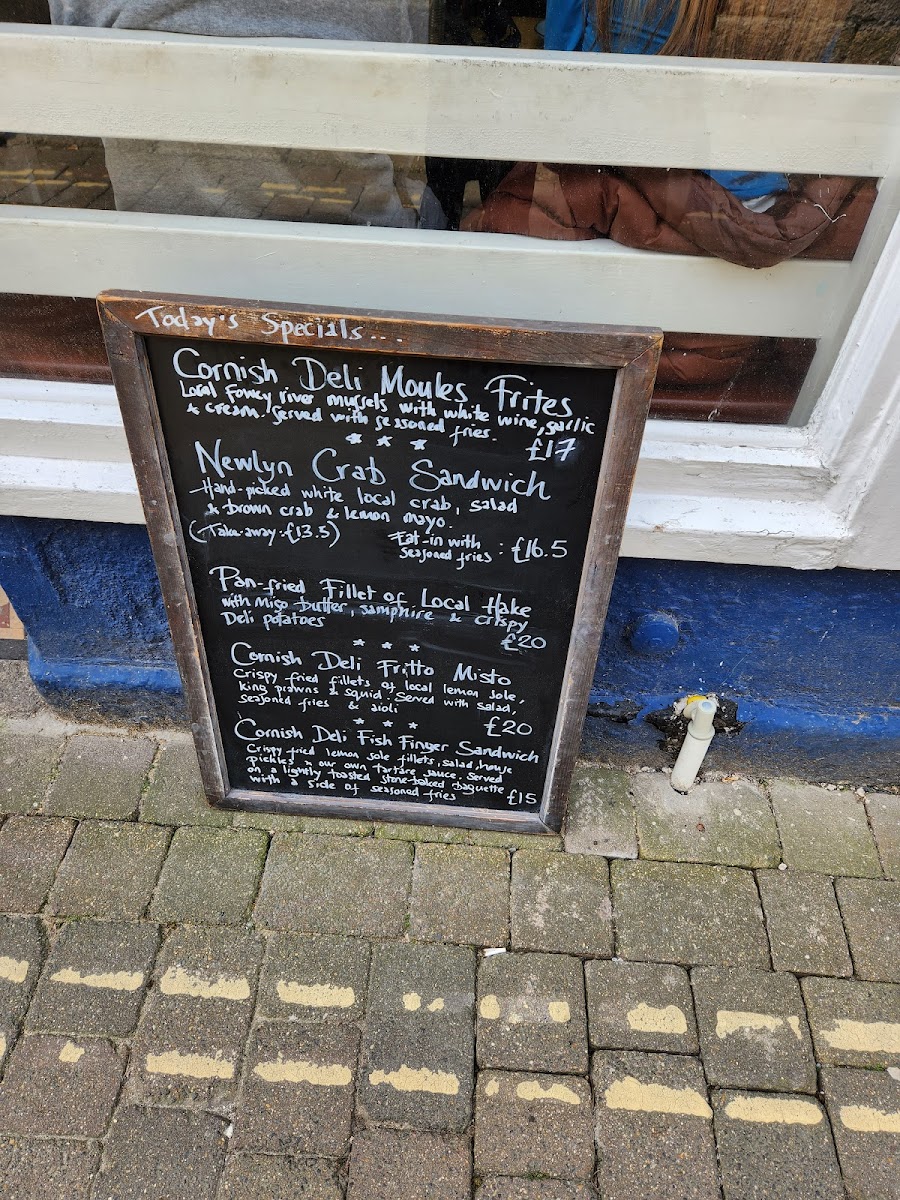 Today's Specials...
Cornish Deli Moules Frites
Local Fowey river mussels with white wine, garlic
& cream. Served with seasoned fries.
£17
* * *
Newlyn Crab Sandwich
Hand-picked white local crab, salad
& brown crab & lemon mayo.
(Take-away: £13.5)
Eat-in with
seasoned fries : £16.5
Pan-fried Fillet of Local Hake
with Miso butter, samphire & crispy
Deli potatoes
£20
* * *
Cornish Deli Fritto Misto
Crispy fried fillets of local lemon sole,
king prawns & squid. Served with salad,
seasoned fries & aioli
£20
* * *
Cornish Deli Fish Finger Sandwich
Crispy fried lemon sole fillets, salad, house
pickles n our own tartare sauce. Served
on a lightly toasted stone-baked baguette
with a side of seasoned fries
£15